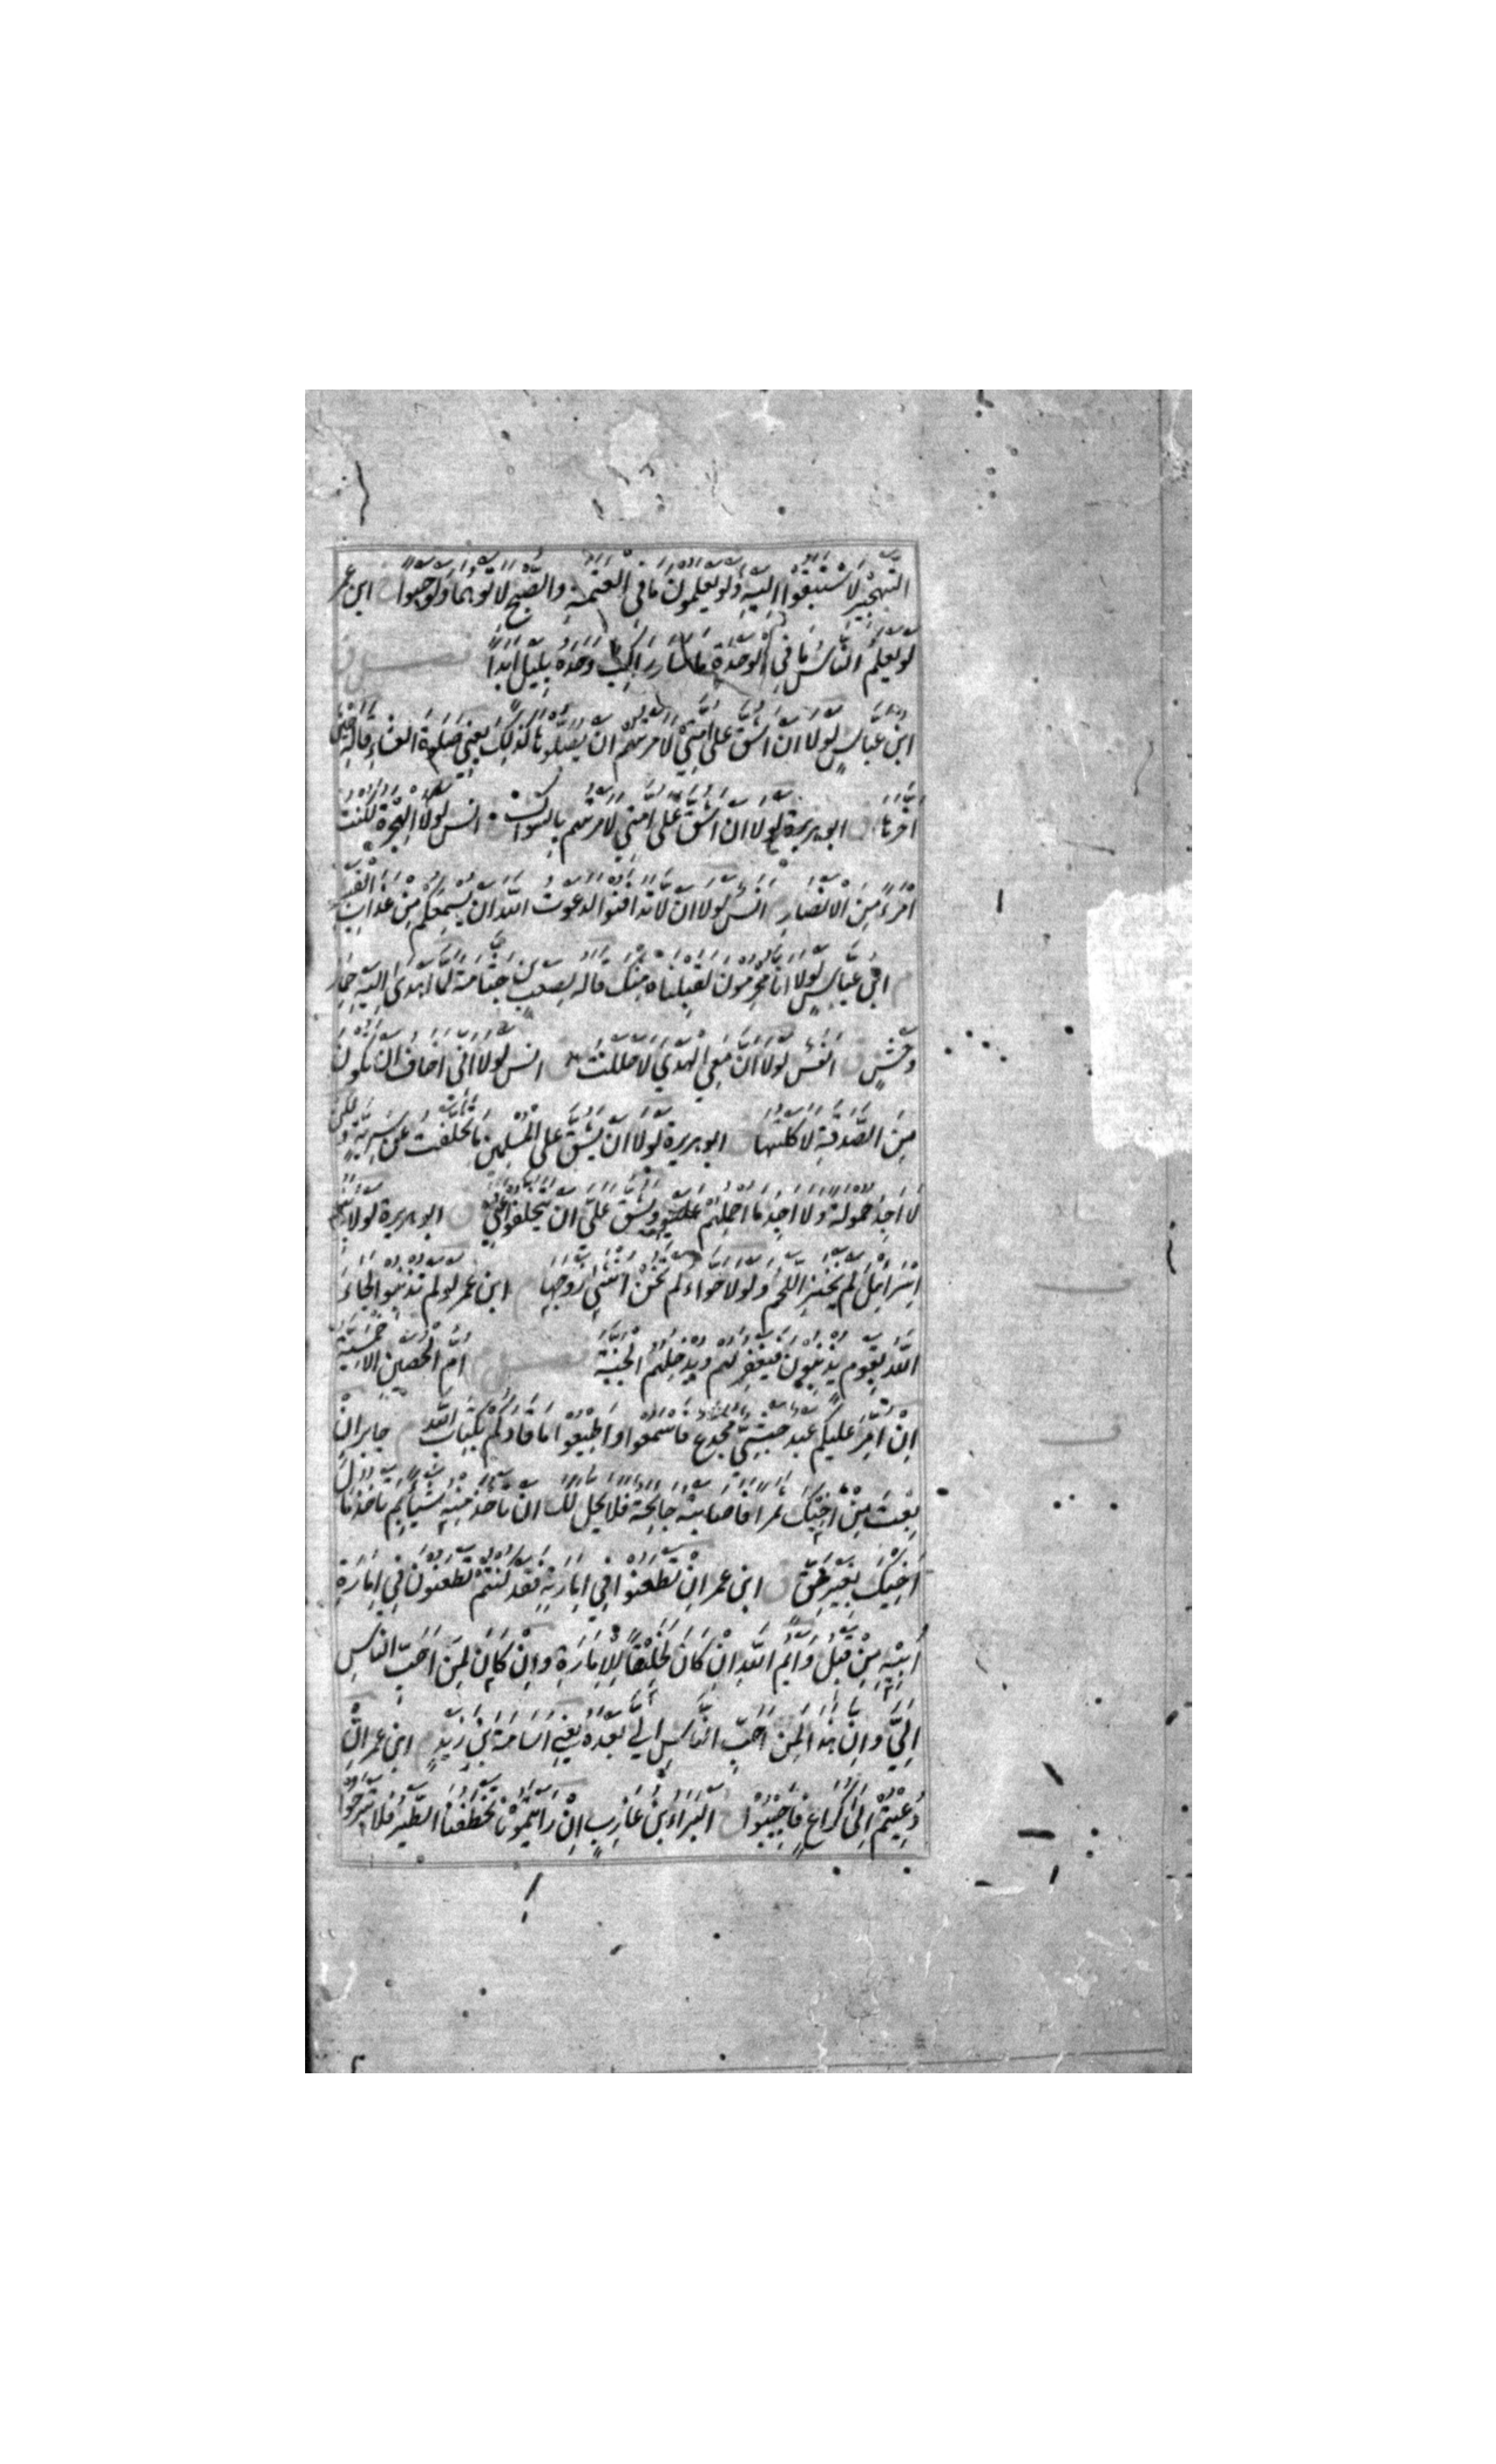 التهجير لاستبقوا اليه ولو يعلمون ما في العتمة والصبح لاتوهما ولو حبوا ابن عمر
لو يعلم الناس ما في الوحدة ما سار راكب وحده بليل ابدا فصل
ابن عباس لولا ان اشق على امتي لامرتهم ان يصلوها كذلك يعني صلوة العشاء قاله حين
اخرها ابو هريرة لولا ان اشق على امتي لامرتهم بالسواك انس لولا الهجرة لكنت
امرءا من الانصار انس لولا ان لا تدافنوا لدعوت الله ان يسمعكم من عذاب القبر
م ابن عباس لولا انا محرمون لقبلناه منك قاله لصعب بن جثامة لما اهدى اليه حمار
وحش انس لولا ان معي الهدي لاحللت انس لولا اني اخاف ان تكون
من الصدقة لاكلتها ابو هريرة لولا ان يشق على المسلمين ما تخلفت عن سرية ولكن
لا اجد حمولة ولا اجد ما احملهم عليه ويشق علي ان يتخلفوا عني ق ابو هريرة لولا بنو
اسرائيل لم يخنز اللحم ولولا حواء لم تخن انثى زوجها ابن عمر لو لم تذنبوا لجاء
الله بقوم يذنبون فيغفر لهم ويدخلهم الجنة فصل ام الحصين الاحمسية
ان امر عليكم عبد حبشي مجدع فاسمعوا واطيعوا ما قادكم بكتاب الله م جابر ان
بعت من اخيك ثمرا فاصابته جايحة فلا يحل لك ان تاخذ منه شيئا بم تاخذ مال
اخيك بغير حق ق ابن عمر ان تطعنوا في امارته فقد كنتم تطعنون في امارة
ابيه من قبل وايم الله ان كان لخليقا للامارة وان كان لمن احب الناس
الي وان هذا لمن احب الناس الي بعده يعني اسامة بن زيد م ابن عمر ان
دعيتم الى كراع فاجيبوا البراء بن عازب ان رايتمونا تخطفنا الطير فلا تبرحوا